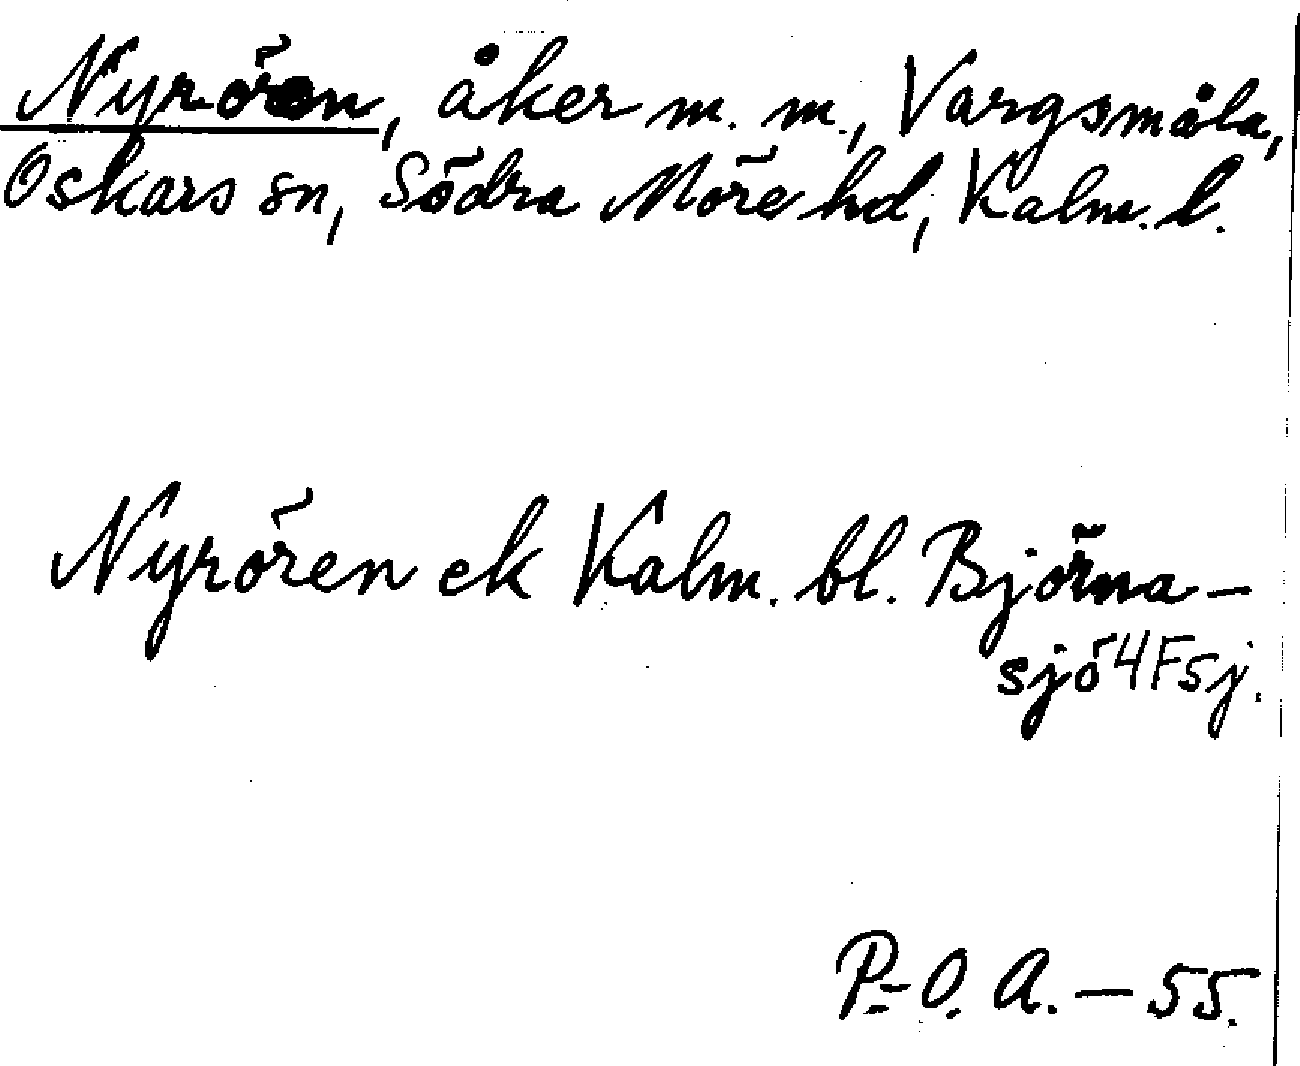 Nyrören, åker m. m., Vargsmåla,
Oskars sn, Södra Möre hd, Kalm. l.
Nyrören ek Kalm. bl. Björna-
sjö 4F5j.
P.-O. A. — 55.